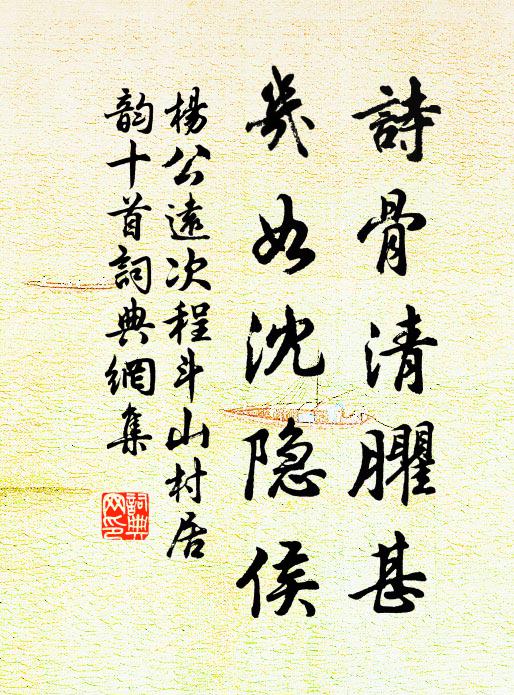 詩骨清臞甚
幾如沈隐侯
楊公遠次程斗山村居
韵十首詞典網集
詞典
网印